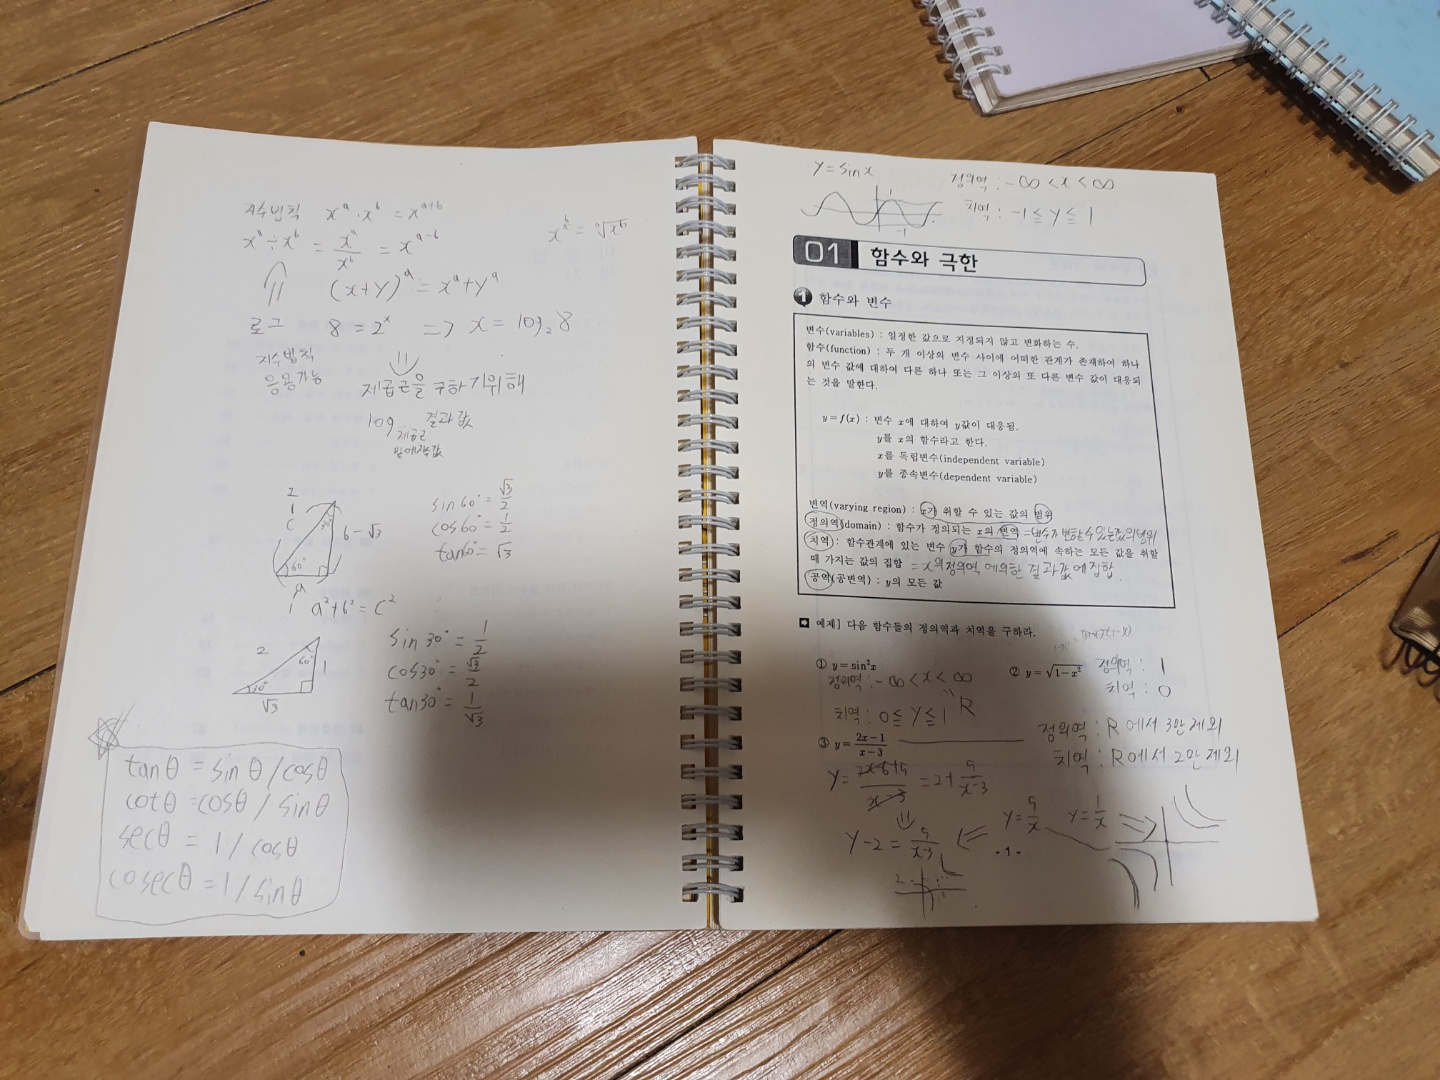 지수법칙 xᵃ·xᵇ = xᵃ⁺ᵇ
xᵃ÷xᵇ = xᵃ/xᵇ = xᵃ⁻ᵇ
(x+y)ᵃ = xᵃ+yᵃ
로그 8 = 2ˣ => x = log₂8
지수법칙
응용가능
제곱근을 구하기위해
log 결과값
제곱근
밑에작수값
2
1
c
30°
b-√3
60°
a
1
a²+b² = c²
sin60° = √3/2
cos60° = 1/2
tan60° = √3
2
60°
1
30°
√3
sin30° = 1/2
cos30° = √3/2
tan30° = 1/√3
tanθ = sinθ/cosθ
cotθ = cosθ/sinθ
secθ = 1/cosθ
cosecθ = 1/sinθ
y = sin x
정의역 : -∞ < x < ∞
치역 : -1 ≦ y ≦ 1
1
-1
01 함수와 극한
1 함수와 변수
변수(variables) : 일정한 값으로 지정되지 않고 변화하는 수.
함수(function) : 두 개 이상의 변수 사이에 어떠한 관계가 존재하여 하나
의 변수 값에 대하여 다른 하나 또는 그 이상의 또 다른 변수 값이 대응되
는 것을 말한다.
y=f(x) : 변수 x에 대하여 y값이 대응됨.
y를 x의 함수라고 한다.
x를 독립변수(independent variable)
y를 종속변수(dependent variable)
변역(varying region) : x가 취할 수 있는 값의 범위
정의역(domain) : 함수가 정의되는 x의 변역 = 변수가 변할수 있는 값의 범위
치역 : 함수관계에 있는 변수 y가 함수의 정의역에 속하는 모든 값을 취할
때 가지는 값의 집합 = x의 정의역에 의한 결과값에 집합.
공역(공변역) : y의 모든 값
예제] 다음 함수들의 정의역과 치역을 구하라.
① y=sin²x
정의역 : -∞ < x < ∞
R
치역 : 0 ≦ y ≦ 1
② y=√(1-x²) 정의역 : 1
치역 : 0
③ y=(2x-1)/(x-3)
정의역 : R에서 3만 제외
치역 : R에서 2만 제외
y = (2x-6+5)/(x-3) = 2+5/(x-3)
y-2 = 5/(x-3)
y = 5/x
y = 1/x
2
·1·